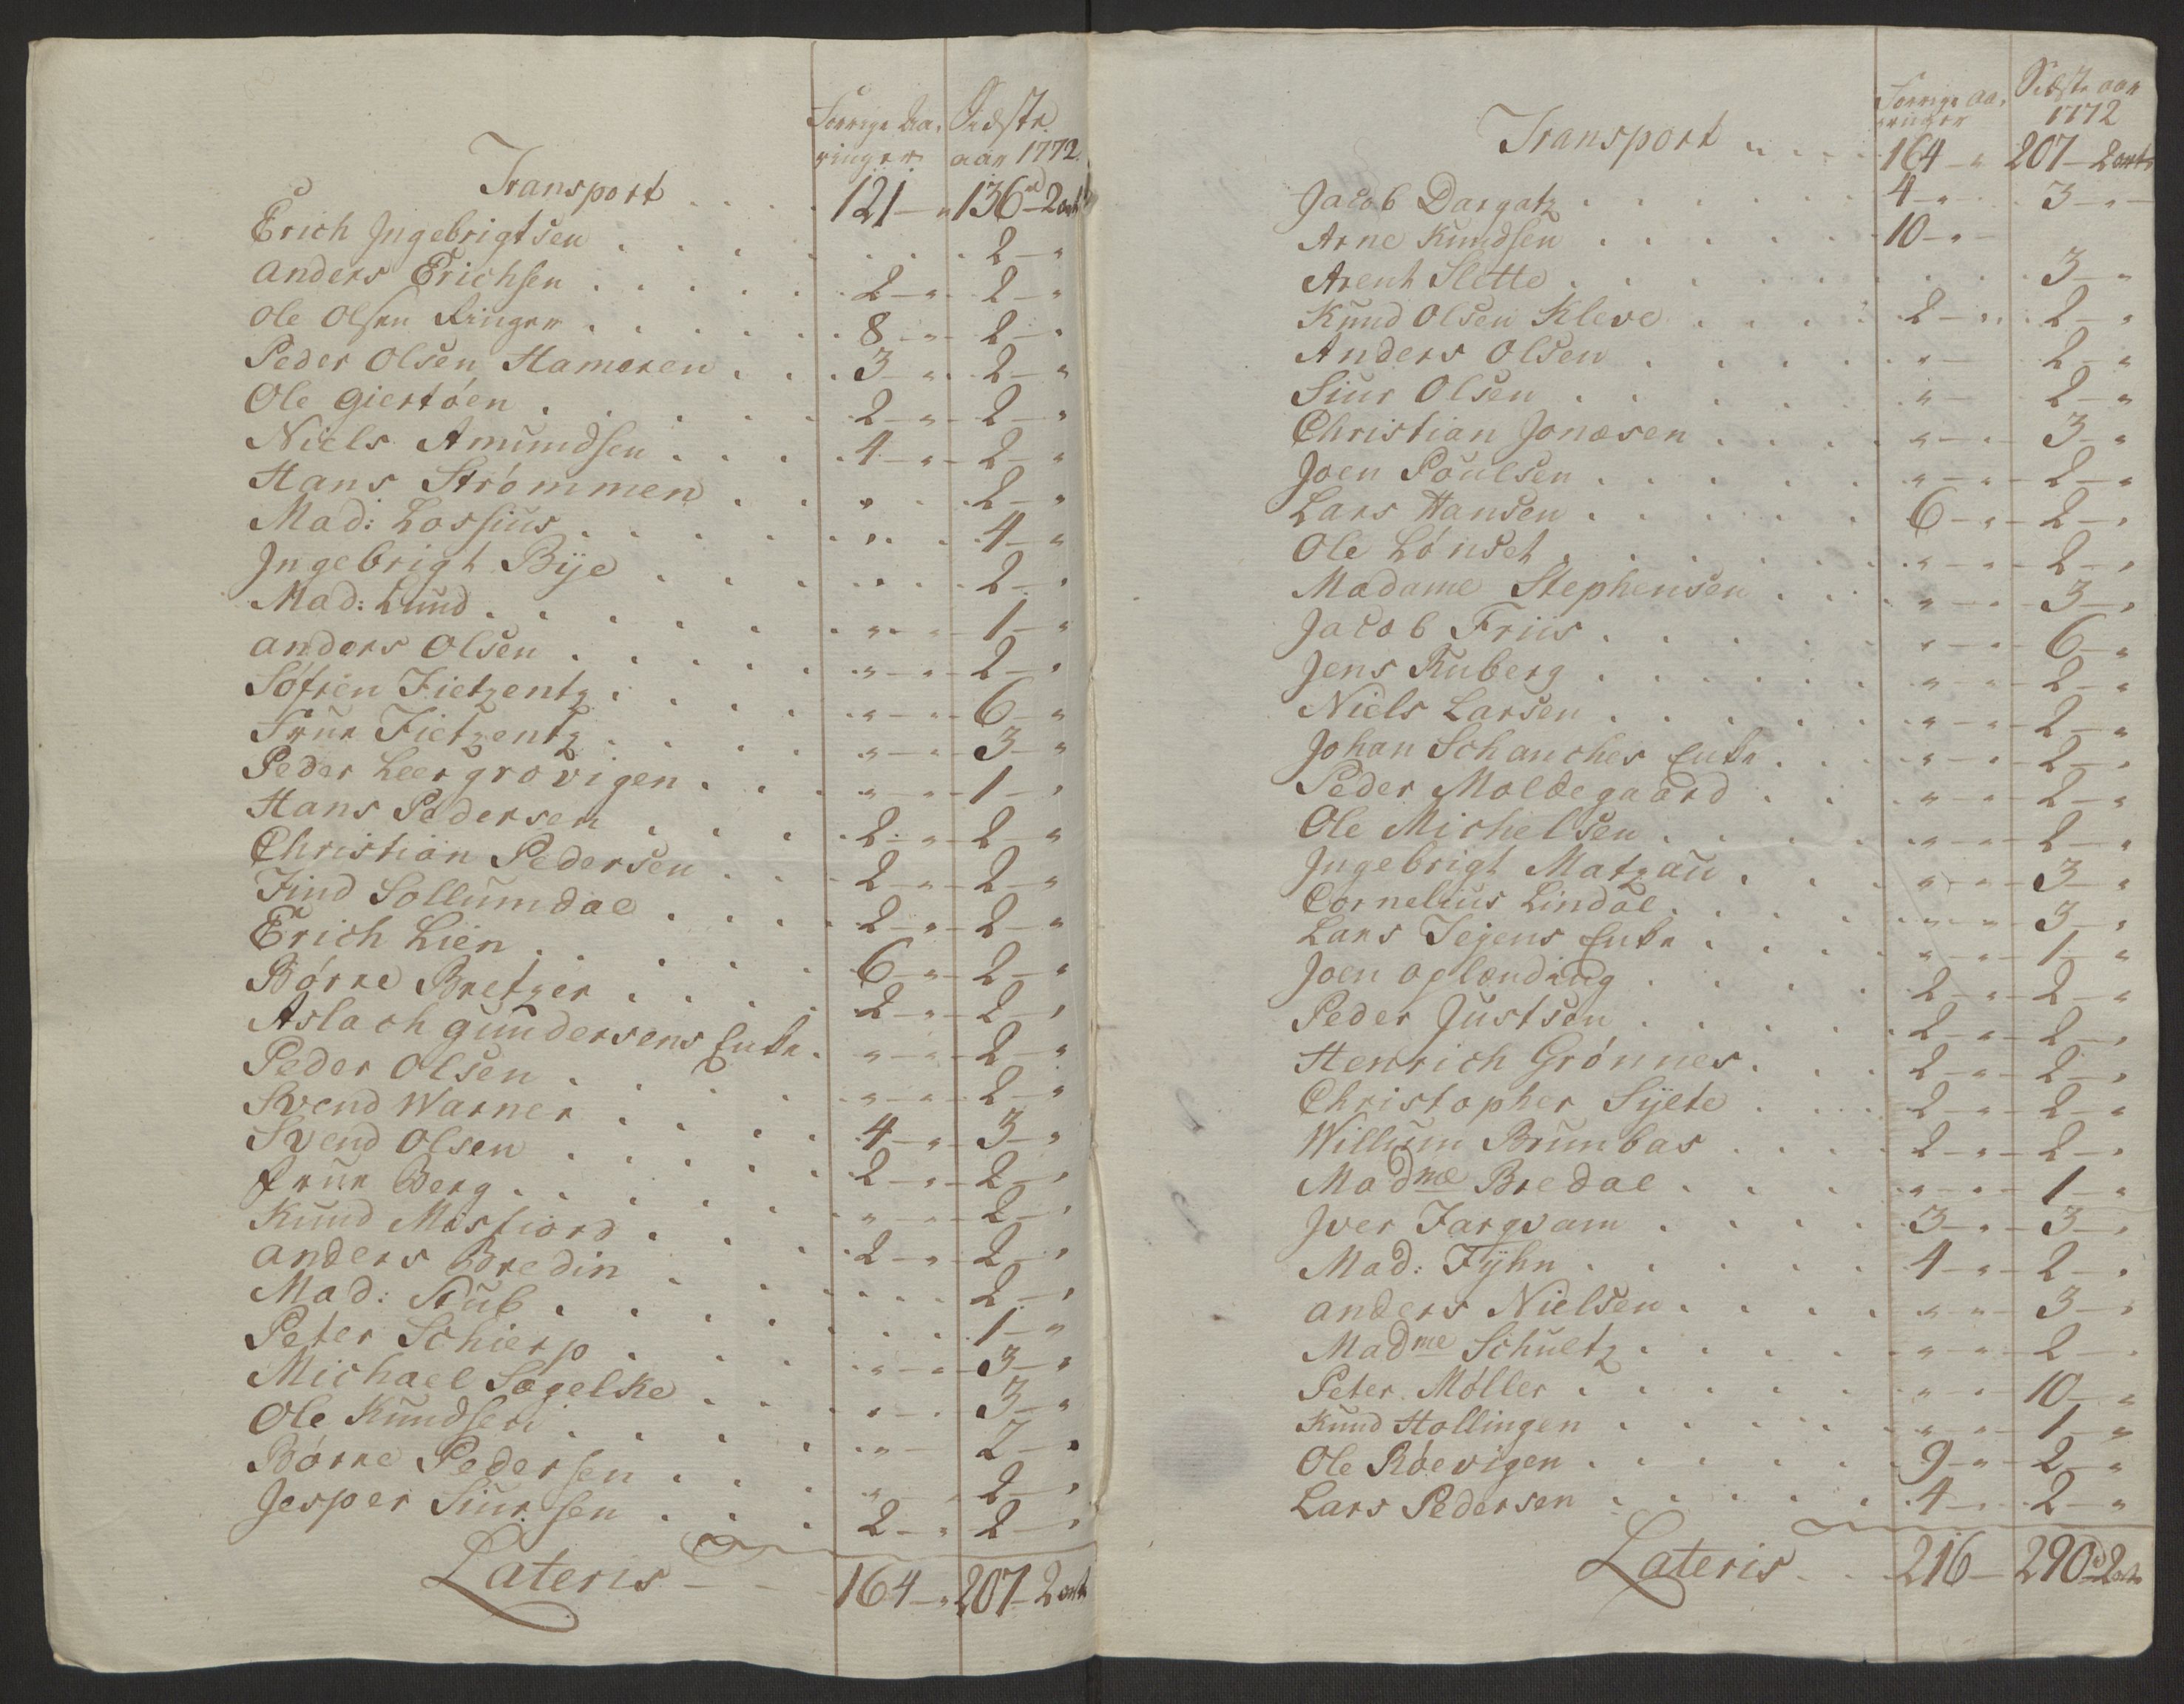 Forrige Aa, Sidste
ringer aar 1772
Transport . . . . 121 — " 136 — 2 ort
Erich Ingebrigtsen . . . . . . . 2 — "
Anders Erichsen . . . . . 2 — " 2 — "
Ole Olsen Ringer . . . . . 8 — " 2 — "
Peder Olsen Hameren . . . 3 — " 2 — "
Ole Giertøen . . . . . 2 — " 2 — "
Niels Amundsen . . . . 4 — " 2 — "
Hans Strømmen . . . " . 2 — "
Mad: Lossius . . . . . " . 4 — "
Ingebrigt Bije . . . . " . 2 — "
Mad: Lund . . . . . . " — " 1 — "
Anders Olsen . . . . . " — " 2 — "
Søfren Fietzentz . . . . " — " 6 — "
Frue Fietzentz . . . . " — " 3 — "
Peder Leergrovigen . . . " — " 1 — "
Hans Pedersen . . . . 2 — " 2 — "
Christian Pedersen . . . 2 — " 2 — "
Find Sollumdal . . . . 2 — " 2 — "
Erich Lien . . . . . 6 — " 2 — "
Børre Bretzer . . . . 2 — " 2 — "
Aslach Gundersens Enke . " — " 2 — "
Peder Olsen . . . . " — " 2 — "
Svend Warner . . . . 4 — " 3 — "
Svend Olsen . . . . . 2 — " 2 — "
Frue Berg . . . . . " — " 2 — "
Knud Misfiord . . . 2 — " 2 — "
Anders Bredin . . . . . . 2 — "
Mad: Stub . . . . . . . 1 — "
Peter Schierp . . . . " — " 3 — "
Michael Søgelke . . . " — . 3 — "
Ole Knudsen . . . . . " — 2 — "
Børre Pedersen . . . " — 2 — "
Jesper Siursen . . . 2 — " 2 — "
Lateris — — 164 — " 207 — 2 ort
Forrige Aa, Sidste aar
ringer 1772
Transport . . . . 164 — " 207 — 2 ort
Jacob Dargatz . . . . . . 4 — " . . 3 — " —
Arne Knudsen . . . . . . 10 — "
Arent Slette . . . . . . . . . 3 — "
Knud Olsen Kleve . . . . 2 — " 2 — "
Anders Olsen . . . . . " — 2 — "
Siur Olsen . . . . . . " — 2 — "
Christian Jonæsen . . . . " — " 3 — "
Joen Poulsen . . . . . " — " 2 — "
Lars Hansen . . . . . 6 — " 2 — "
Ole Lønset . . . . . . " — " 2 — "
Madame Stephensen . . . " — " 3 — "
Jacob Friis . . . . . " — " 6 — "
Jens Ruberg . . . . . " — " 2 — "
Niels Larsen . . . . . " — " 2 — "
Johan Schanches Enke . . . " — " 2 — "
Peder Moldegaard . . . " — " 2 — "
Ole Michelsen . . . . . " — " 2 — "
Ingebrigt Matzau . . . " — " 3 — "
Cornelius Lindal . . . . " — " 3 — "
Lars Jegens Enke . . . . " — " 1 — "
Joen Oplænding . . . . 2 — " 2 — "
Peder Justsen . . . . . 2 — " 2 — "
Henrich Grønnes . . . 2 — " 2 — "
Christopher Sylte . . . 2 — " 2 — "
Willum Brunbas . . . . 2 — " 2 — "
Madme Bredal . . . . " — " 1 — "
Iver Fargvam . . . . 3 — " 3 — "
Mad: Fyhn . . . . . 4 — " 2 — "
Anders Nielsen . . . . " — " 3 — "
Madme Schultz . . . . " — " 2 — "
Peter Møller . . . . . " — " 10 — "
Knud Hollingen . . . . . " — " 1 — "
Ole Røevigen . . . . . 9 — " 2 — "
Lars Pedersen . . . . . 4 — " 2 — "
Lateris . . 216 — 290 — 2 ort